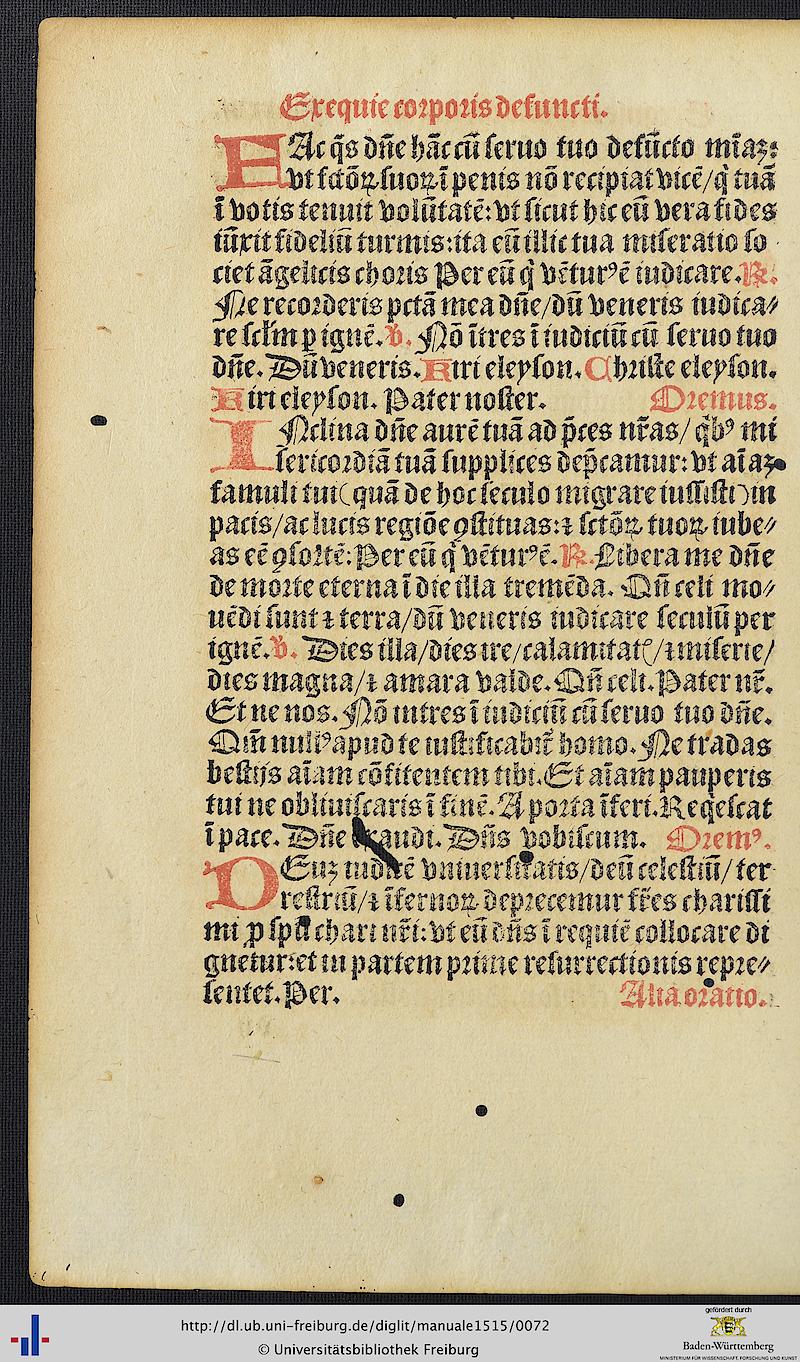 Exequie corporis defuncti.
FAc q̄s dn̄e hāc cū seruo tuo defūcto mīaz:
vt sctōꝝ suoꝝ ī penis nō recipiat vicē/q̇ tuā
ī votis tenuit volūtatē: vt sicut hic eū vera fides
iūxit fideliū turmis: ita eū illic tua miseratio so
ciet āgelicis choris Per eū q̇ vētur⁹ē iudicare.℞.
Ne recorderis pctā mea dn̄e/dū veneris iudica⸗
re sclm̄ ꝑ ignē.℣. Nō ītres ī iudiciū cū seruo tuo
dn̄e. Dū veneris. Kiri eleyson. Christe eleyson.
Kiri eleyson. Pater noster. Oremus.
INclina dn̄e aurē tuā ad p̄ces nr̄as/ q̇b⁹ mi
sericordiā tuā supplices dep̄camur: vt aīaz
famuli tui (quā de hoc seculo migrare iussisti) in
pacis/ac lucis regiōe ꝯstituas: ⁊ sctōꝝ tuoꝝ iube⸗
as eē ꝯsortē: Per eū q̇ vētur⁹ē.℞. Libera me dn̄e
de morte eterna ī die illa tremēda. Qn̄ celi mo⸗
uēdi sunt ⁊ terra/dū veneris iudicare seculū per
ignē.℣. Dies illa/dies ire/calamitatꝭ/⁊ miserie/
dies magna/⁊ amara valde. Qn̄ celi. Pater nr̄.
Et ne nos. Nō intres ī iudiciū cū seruo tuo dn̄e.
Qm̄ null⁹ apud te iustificabit̄ homo. Ne tradas
bestijs aīam cōfitentem tibi. Et aīam pauperis
tui ne obliuiscaris ī finē. A porta īferi. Reqͥescat
ī pace. Dn̄e exaudi. Dn̄s vobiscum. Orem⁹.
DEuz iudicē vniuersitatis/deū celestiū/ ter
restriū/⁊ īfernoꝝ deprecemur fr̄es charissi
mi ꝓ spū chari nr̄i: vt eū dn̄s ī requiē collocare di
gnetur: et in partem prime resurrectionis repre⸗
sentet. Per. Alia oratio.
http://dl.ub.uni-freiburg.de/diglit/manuale1515/0072
© Universitätsbibliothek Freiburg
gefördert durch
Baden-Württemberg
MINISTERIUM FÜR WISSENSCHAFT, FORSCHUNG UND KUNST